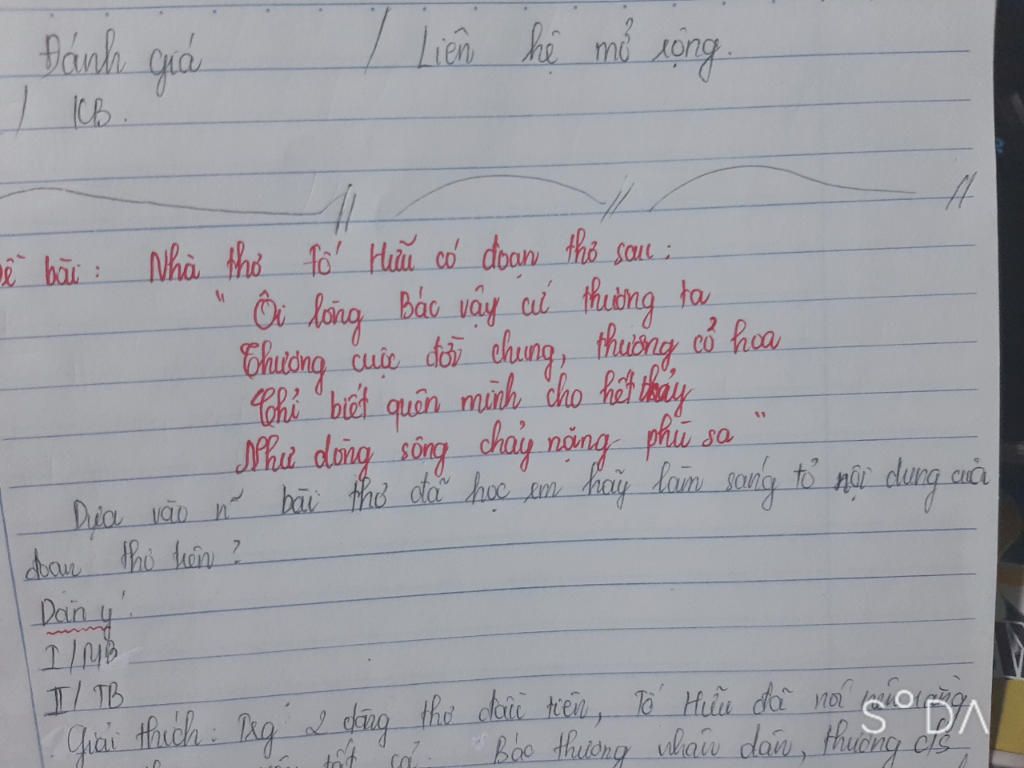 Đánh giá / Liên hệ mở rộng.
/ KB.
Đề bài: Nhà thơ Tố Hữu có đoạn thơ sau:
" Ôi lòng Bác vậy cứ thương ta
Thương cuộc đời chung, thương cỏ hoa
Chỉ biết quên mình cho hết thảy
Như dòng sông chảy nặng phù sa "
Dựa vào n~ bài thơ đã học em hãy làm sáng tỏ nội dung của
đoạn thơ trên?
Dàn ý:
I/ MB
II/ TB
Giải thích: Trg 2 dòng thơ đầu tiên, Tố Hữu đã nói
tất cả. Bác thương nhân dân, thương c/s
SODA